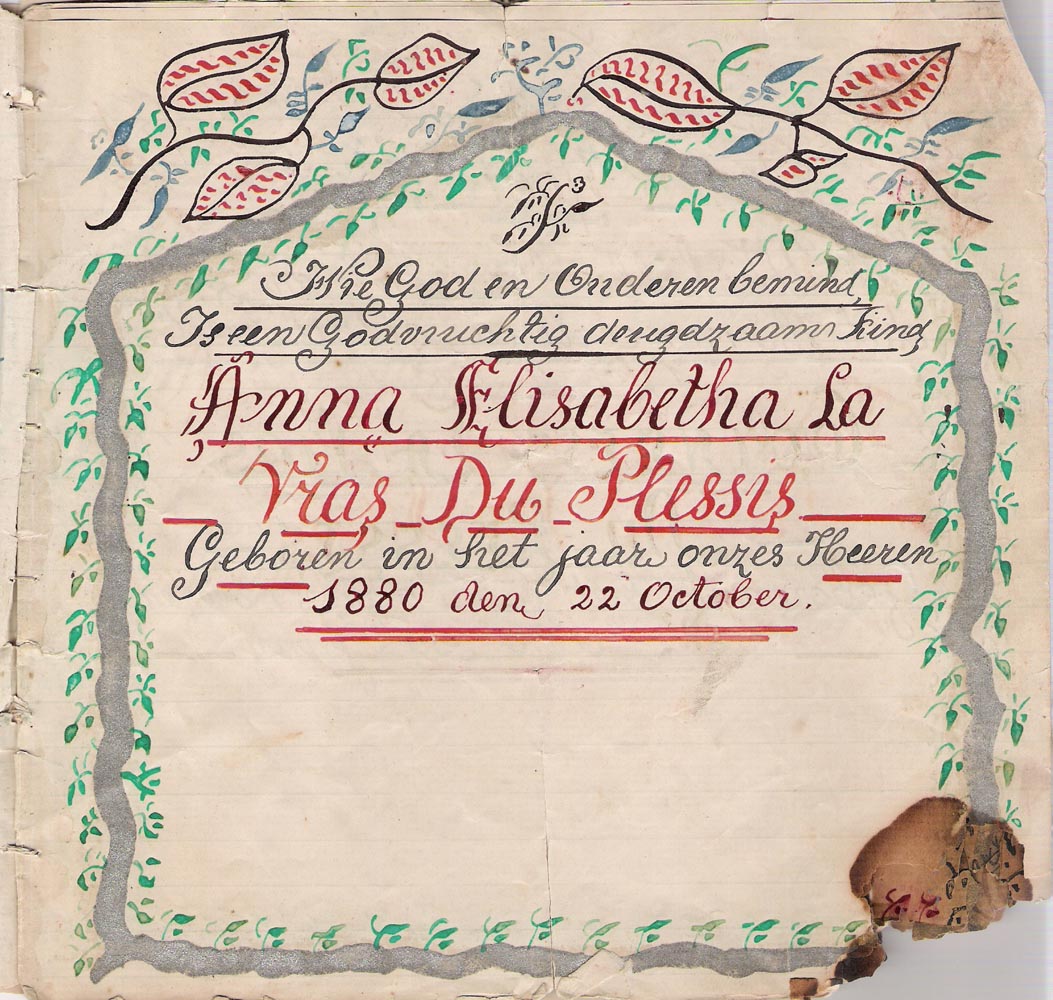 Wie God en Ouderen bemind,
Is een Godvruchtig deugdzaam Kind
Anna Elisabetha La
Vras Du Plessis
Geboren in het jaar onzes Heeren
1880 den 22 October.